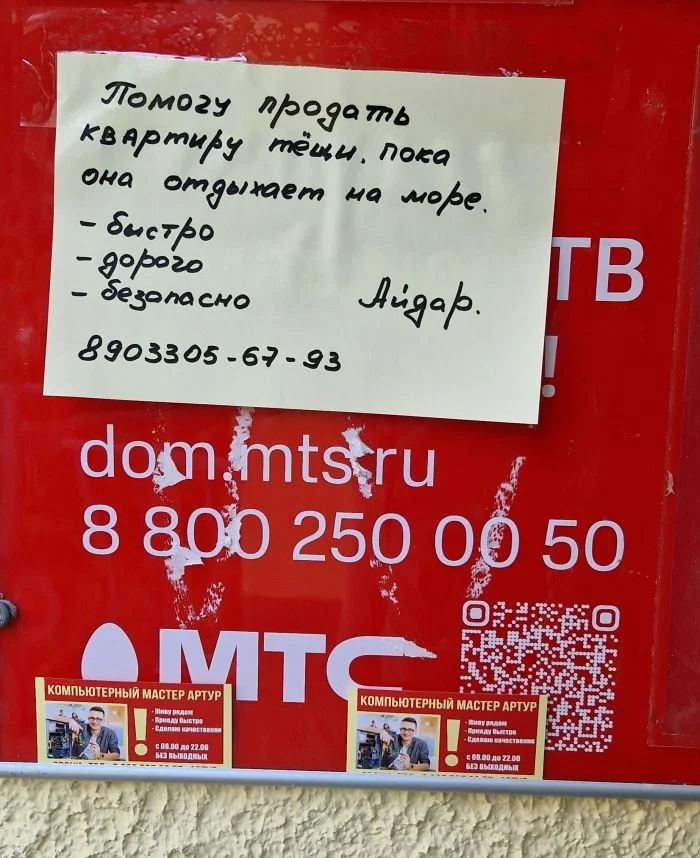 Помогу продать
квартиру тёщи, пока
она отдыхает на море.
- быстро
- дорого
- безопасно
Айдар.
8903305-67-93
ТВ
!
dom.mts.ru
8 800 250 00 50
МТС
КОМПЬЮТЕРНЫЙ МАСТЕР АРТУР
- Живу рядом
- Приеду быстро
- Сделаю качественно
!
с 08.00 до 22.00
БЕЗ ВЫХОДНЫХ
КОМПЬЮТЕРНЫЙ МАСТЕР АРТУР
- Живу рядом
- Приеду быстро
- Сделаю качественно
!
с 08.00 до 22.00
БЕЗ ВЫХОДНЫХ